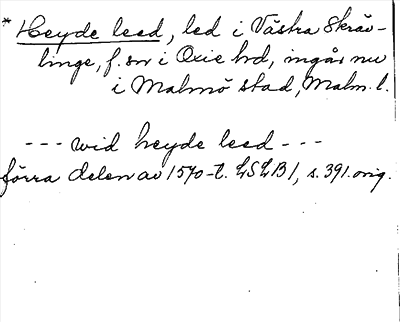 * Heyde leed, led i Västra Skräv-
linge, f. sn i Oxie hd, ingår nu
i Malmö stad, Malm. l.
--- wid heyde leed ---
förra delen av 1570-t. LSLB 1, s. 391. orig.